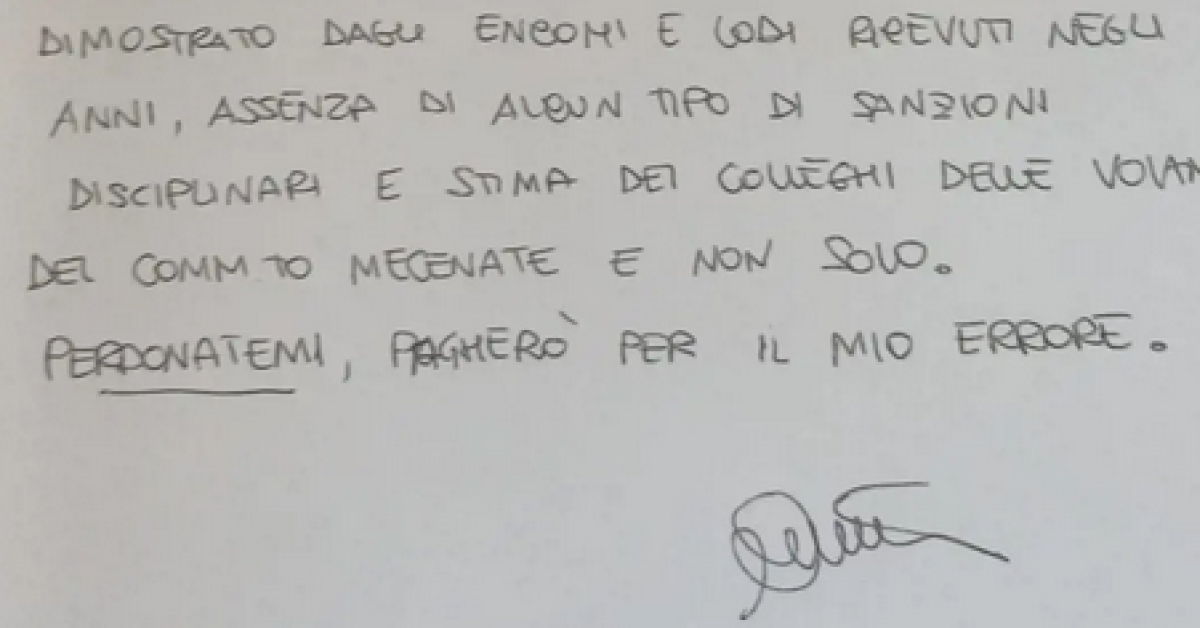 DIMOSTRATO DAGLI ENCOMI E LODI RICEVUTI NEGLI
ANNI, ASSENZA DI ALCUN TIPO DI SANZIONI
DISCIPLINARI E STIMA DEI COLLEGHI DELLE VOLAN
DEL COMM.TO MECENATE E NON SOLO.
PERDONATEMI, PAGHERÒ PER IL MIO ERRORE.